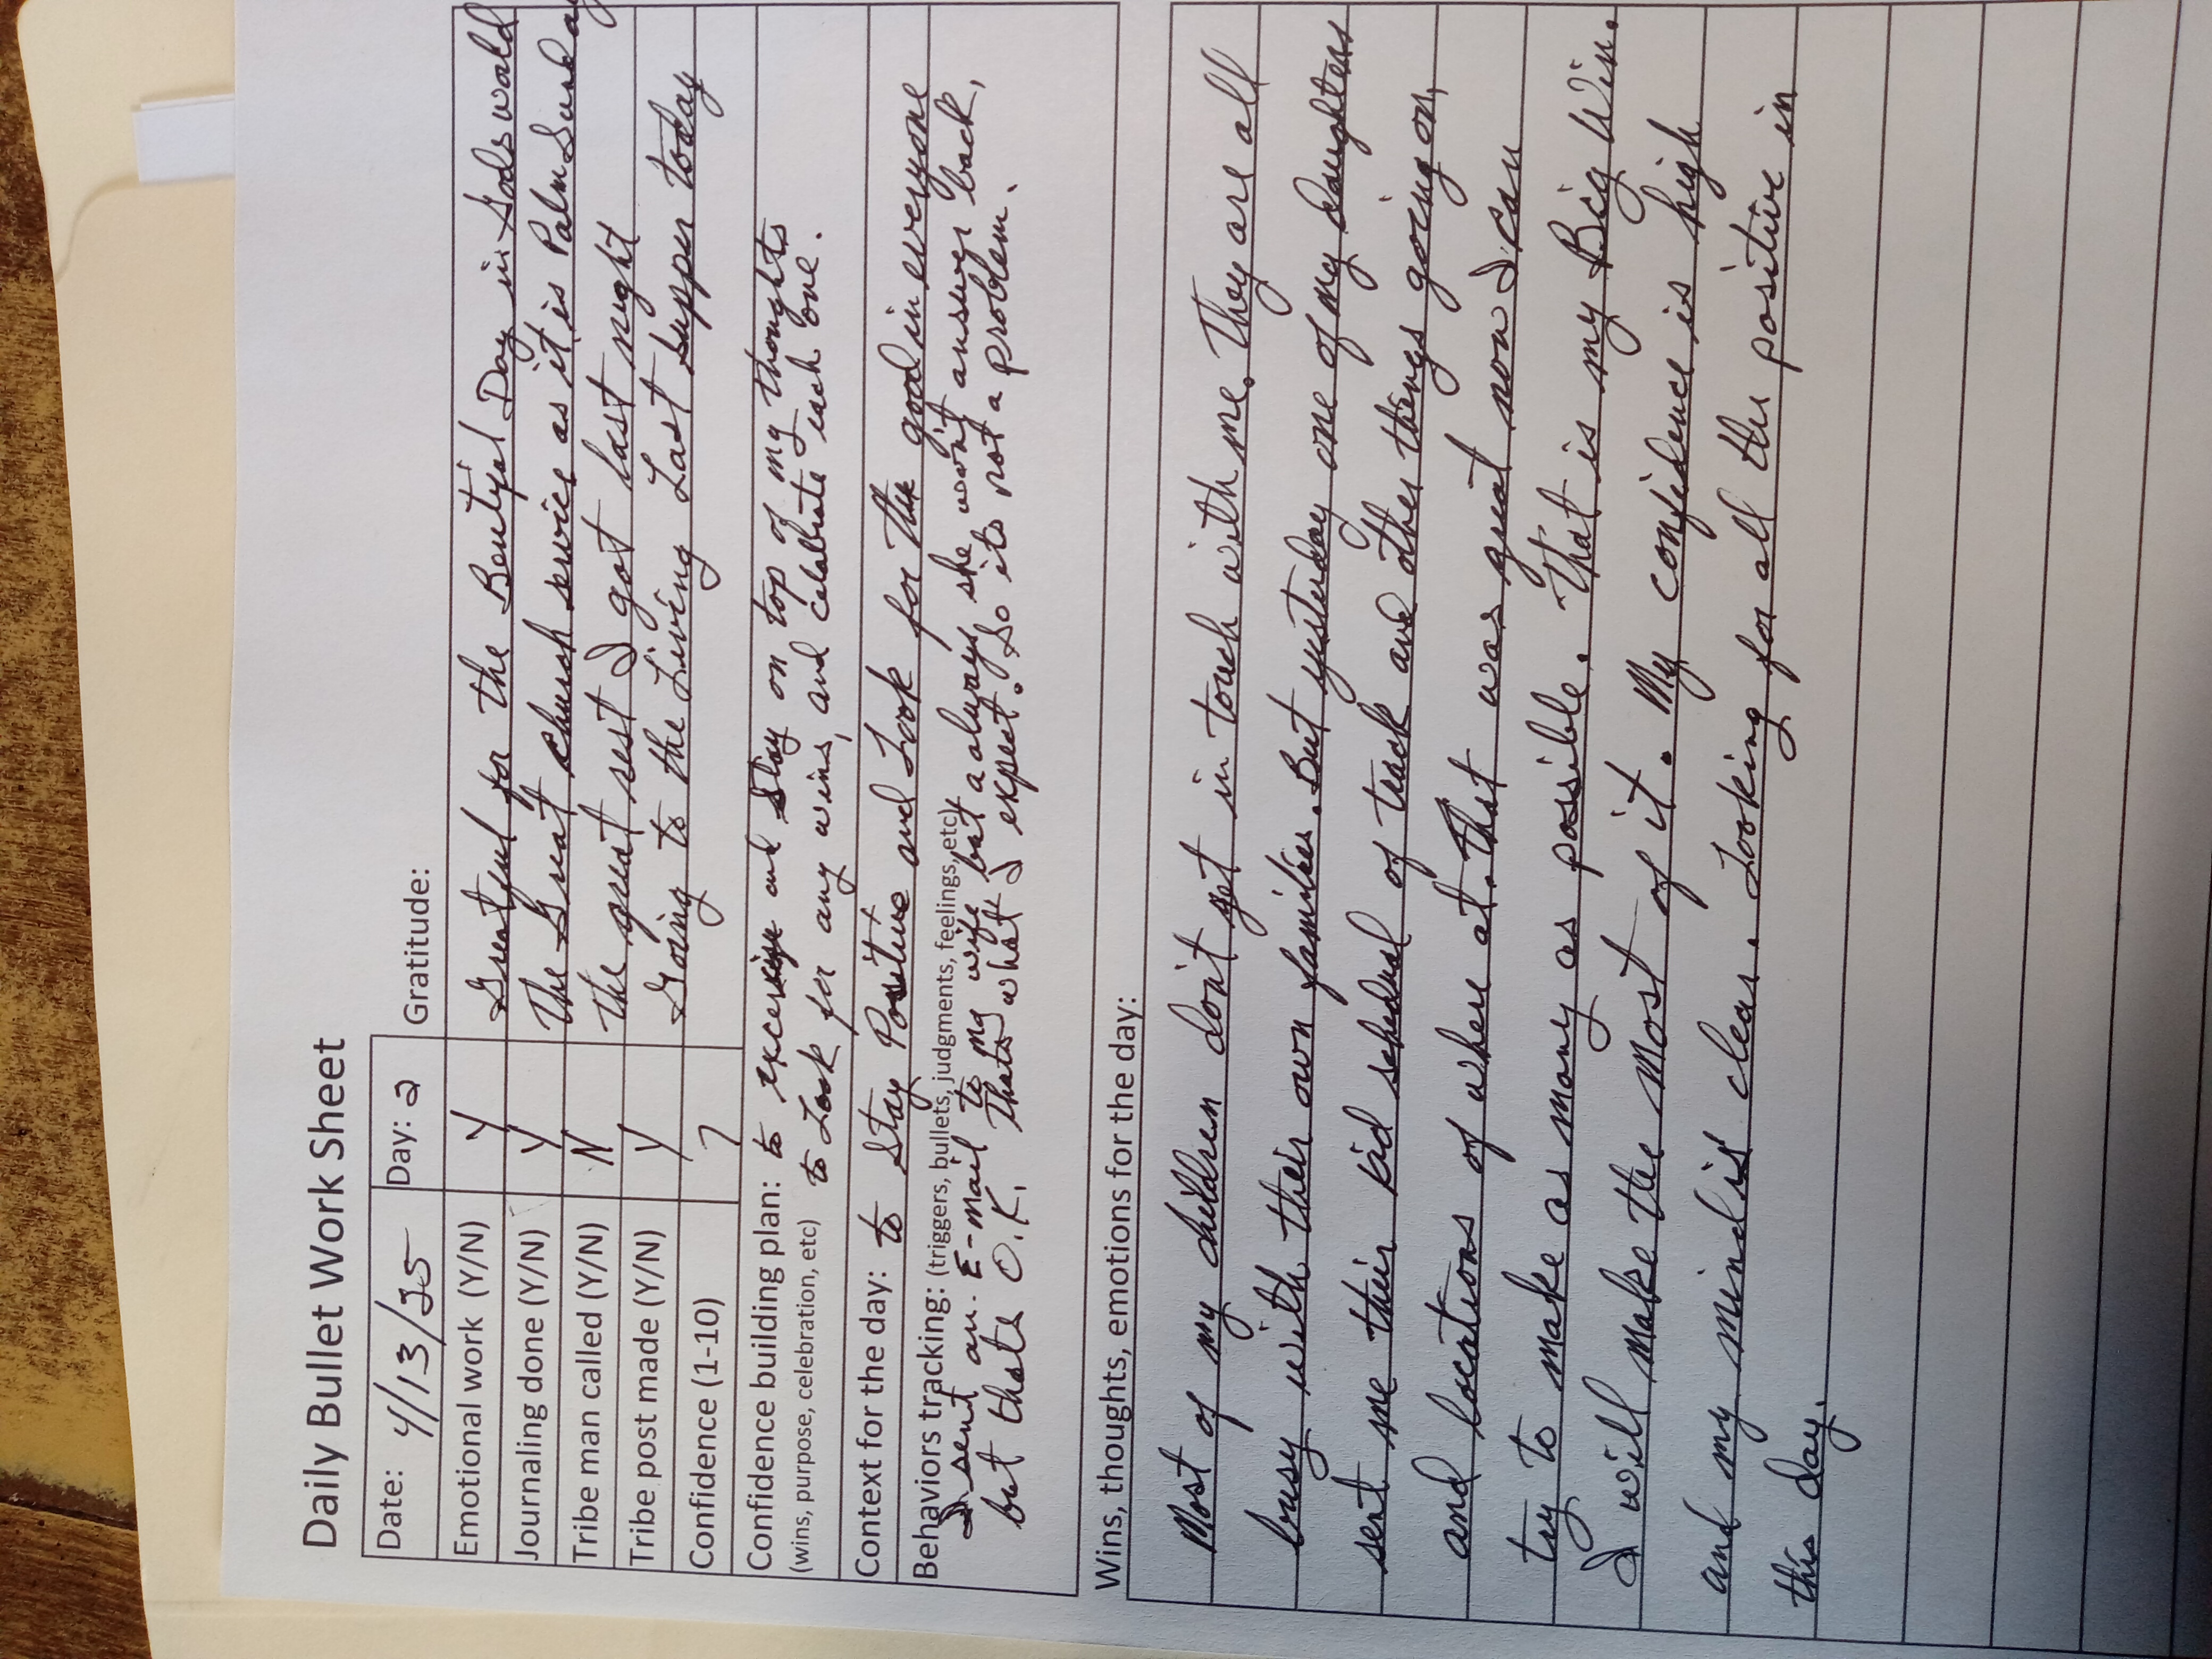 Daily Bullet Work Sheet
Date: 4/13/25 Day: 2 Gratitude:
Emotional work (Y/N) Y Greatful for the Beutiful Day in Gods world
Journaling done (Y/N) Y The Great church service as it is Palm Sunday
Tribe man called (Y/N) N the great rest I got last night
Tribe post made (Y/N) Y Going to the Living Last Supper today
Confidence (1-10) 7
Confidence building plan: to excersise and stay on top of my thoughts
(wins, purpose, celebration, etc) to Look for any wins, and celabrate each one.
Context for the day: to Stay Positive and Look for the good in everyone
Behaviors tracking: (triggers, bullets, judgments, feelings, etc)
I sent an E-mail to my wife but always she won't answer back,
but thats O.K. thats what I expect. So its not a problem.
Wins, thoughts, emotions for the day:
Most of my children don't get in touch with me. They are all
busy with their own families. But yesterday one of my daughters
sent me their kid schedual of track and other things going on,
and locations of where at. That was great now I can
try to make as many as possible. That is my Big Win.
I will make the most of it. My confidence is high
and my mind is clear. Looking for all the positive in
this day.